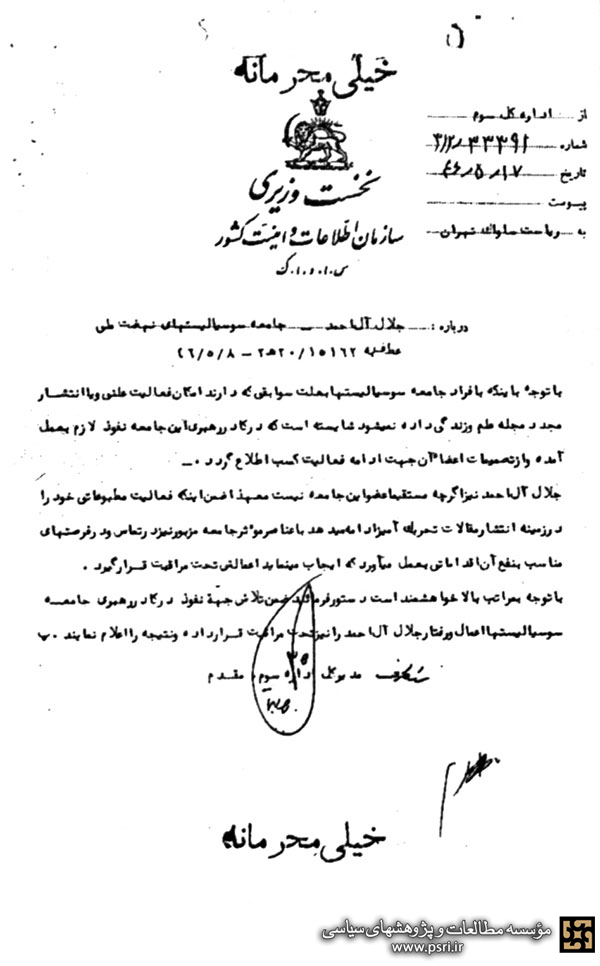 خیلی محرمانه
از اداره کل سوم
شماره ۳۱۲/۳۳۳۹۱
تاریخ ۴۶/۵/۱۷
پیوست
به ریاست ساواک تهران
نخست وزیری
سازمان اطلاعات و امنیت کشور
س.ا.و.ا.ک
درباره : جلال آل احمد — جامعه سوسیالیستهای نهضت ملی
عطف به ۱۵۱۶۲/۲۰ ه‍ ۲ – ۴۶/۵/۸
با توجه باینکه بافراد جامعه سوسیالیستها بعلت سوابقی که دارند امکان فعالیت علنی و یا انتشار
مجدد مجله علم وزندگی داده نمیشود شایسته است که درکادر رهبری این جامعه نفوذ لازم بعمل
آمده و از تصمیمات اعضاء آن جهت ادامه فعالیت کسب اطلاع گردد .—
جلال آل احمد نیز اگرچه مستقیما عضو این جامعه نیست معهذا ضمن اینکه فعالیت مطبوعاتی خود را
در زمینه انتشار مقالات تحریک آمیز ادامه میدهد با عناصر موثر جامعه مزبور نیز در تماس و در فرصتهای
مناسب بنفع آن اقداماتی بعمل میآورد که ایجاب مینماید اعمالش تحت مراقبت قرار گیرد .
با توجه بمراتب بالا خواهشمند است دستور فرمائید ضمن تلاش جهة نفوذ در کادر رهبری جامعه
سوسیالیستها اعمال و رفتار جلال آل احمد را نیز تحت مراقبت قرار داده و نتیجه را اعلام نمایند .
مدیرکل اداره سوم . مقدم
۳۵
خیلی محرمانه
مؤسسه مطالعات و پژوهشهای سیاسی
www.psri.ir